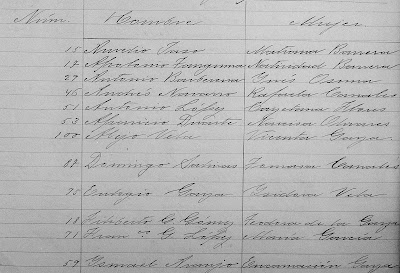 Núm. Hombre Mujer
15 Aurelio Mariana Barrera
17 Apolonio Natividad Barrera
29 Antonio Barberena Inés Osorna
46 Andrés Navarro Rafaela Canales
51 Antonio López Cayetana Flores
53 Aparicio Duarte Narcisa Olivares
100 Alejo Vela Vicenta Garza
88 Domingo Salinas Tomasa Canales
75 Eutigio Garza Isidora Vela
18 Filiberto G. Gomez Teodora de la Garza
71 Fran.co G. López María García
59 Ismael Araujo Encarnación Garza